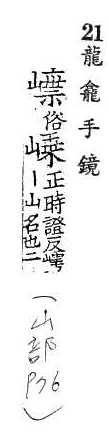 21 龍龕手鏡
俗嵊正時證反嶀
｜山名也二
(山部 P76)